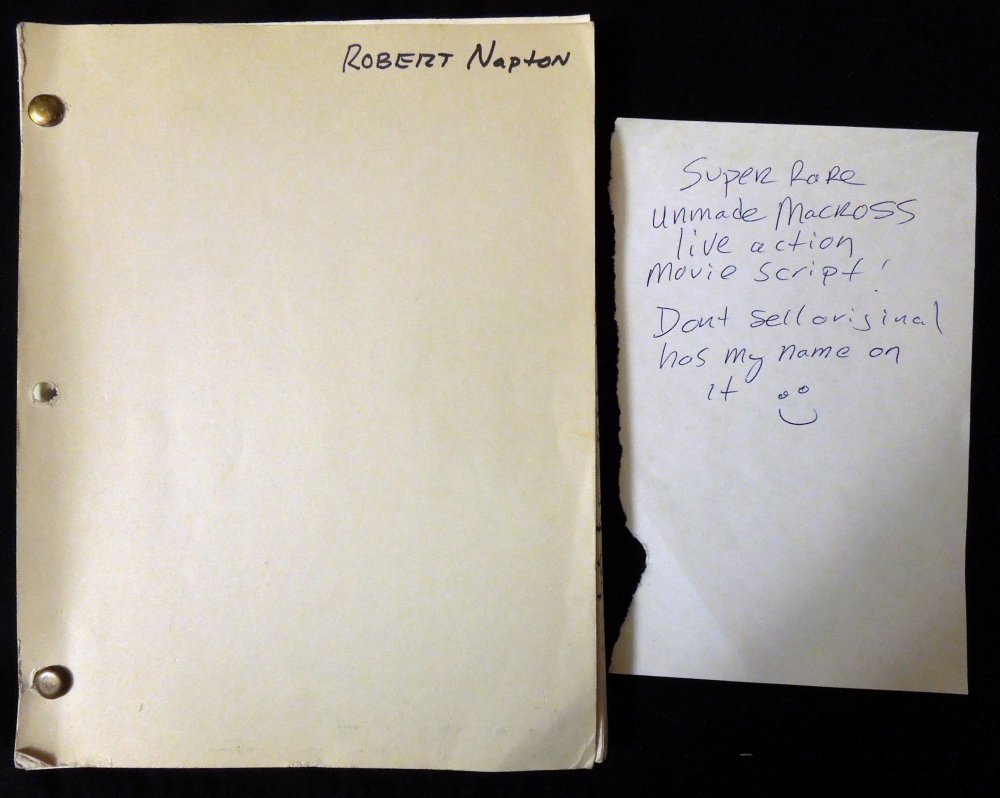 ROBERT NAPTON
Super Rare
unmade Macross
live action
movie script!
Dont sell original
has my name on
it